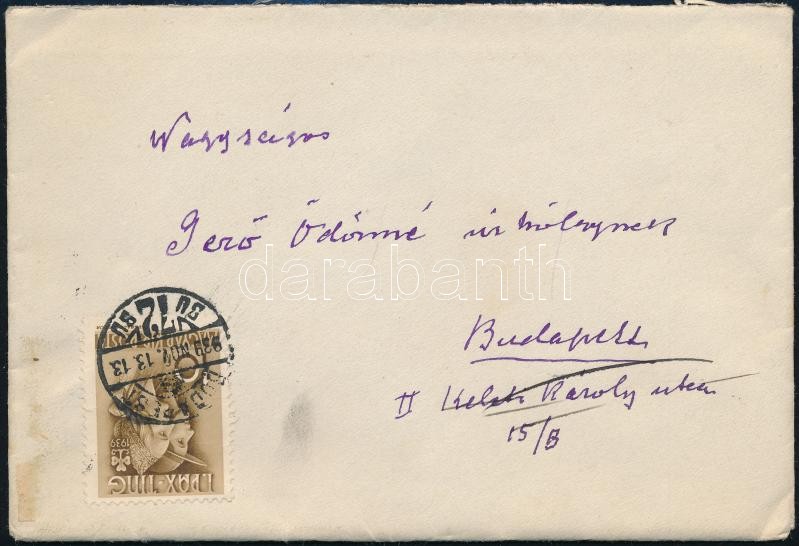 Nagyságos
Gerő Ödönné úrhölgynek
darabanth
Budapest
II Keleti Károly utca
15/B
BUDAPEST
72
939 NOV. 13. 13
I. PAX-TING
1939